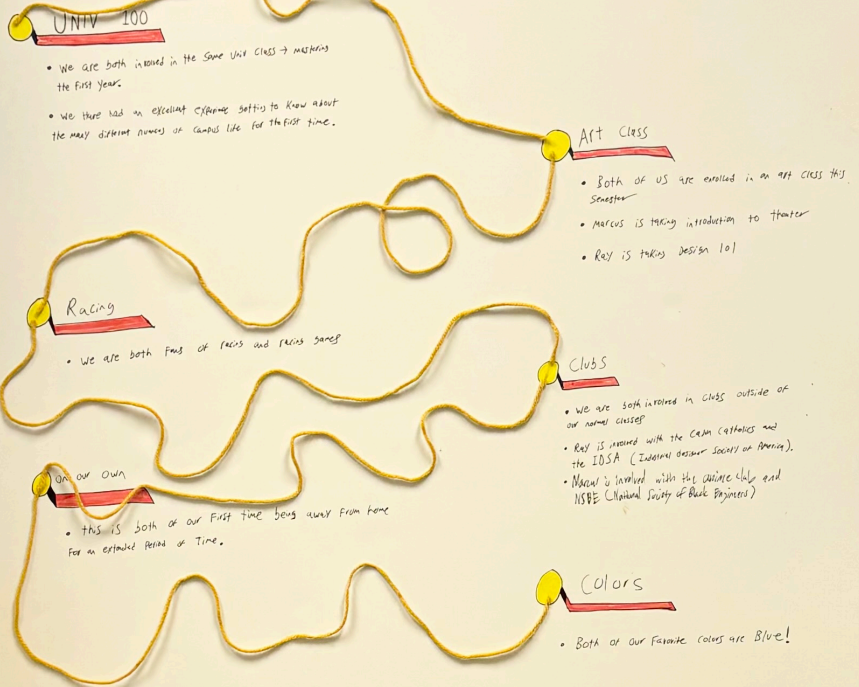 UNIV 100
• We are both involved in the Same Univ Class → Mastering
the First Year.
• We there had an excellent experience getting to Know about
the many different nuances of campus life for the first time.
Art Class
• Both of us are enrolled in an art class this
Semester
• Marcus is taking introduction to theater
• Ray is taking Design 101
Racing
• We are both Fans of racing and racing games
Clubs
• We are both involved in Clubs outside of
our normal classes
• Ray is involved with the Catholics and
the IDSA (Industrial designer Society of America).
• Marcus is involved with the club and
NSBE (National Society of Black Engineers)
on our own
• this is both of our First time being away From home
For an extended Period of Time.
Colors
• Both of our Favorite colors are Blue!